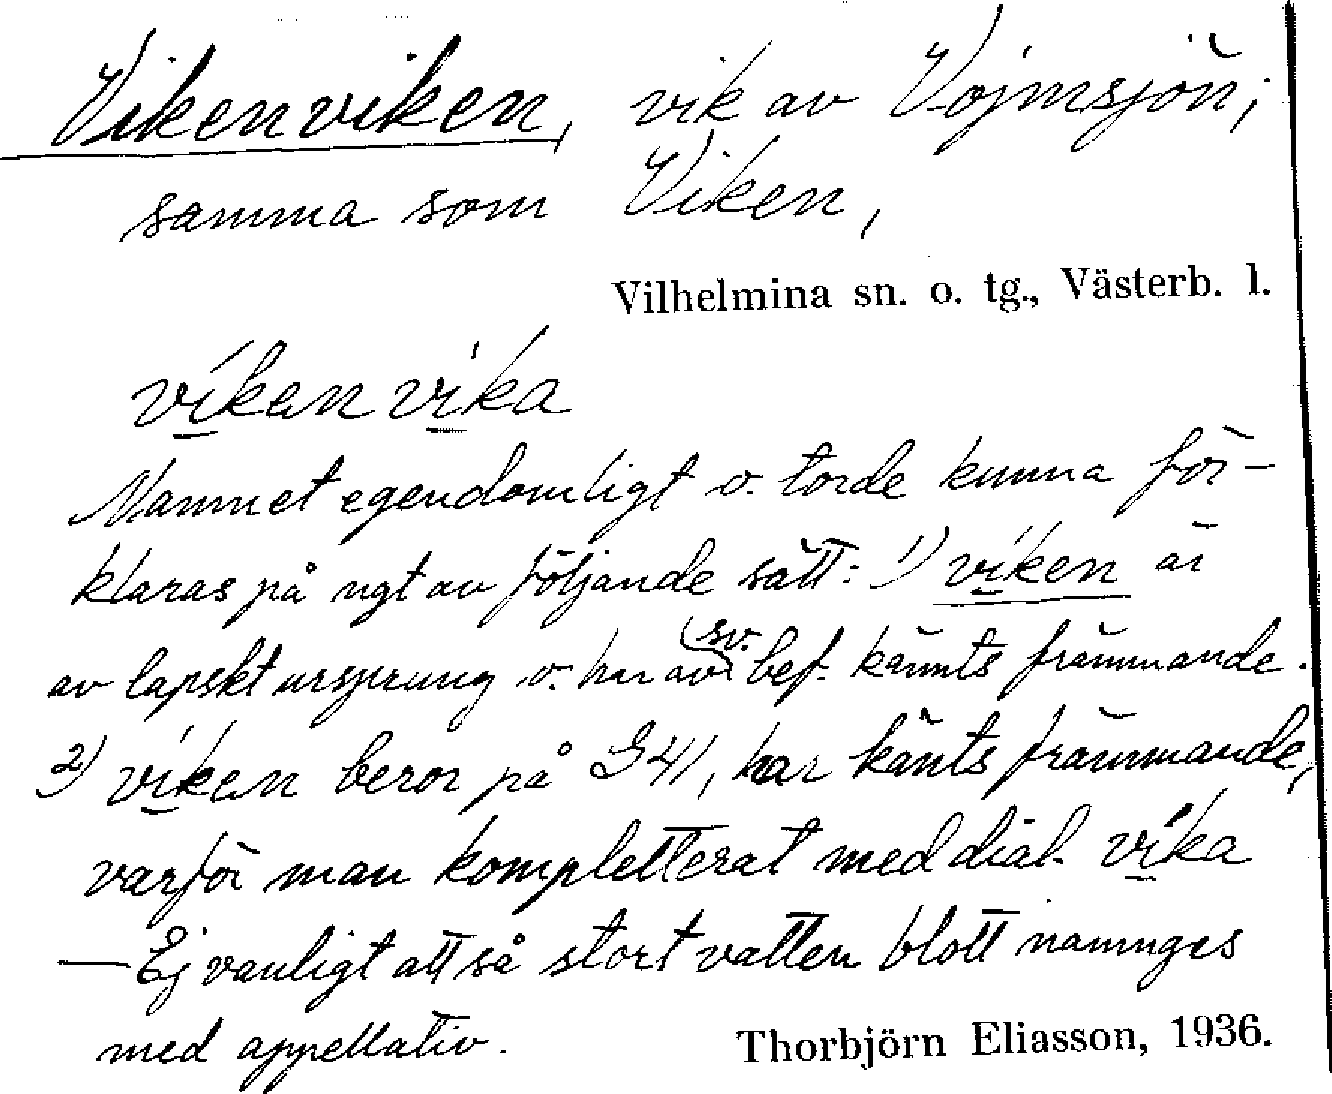 Vikenviken, vik av Vojmsjön;
samma som Viken,
Vilhelmina sn. o. tg., Västerb. l.
víkan víka
Namnet egendomligt o. torde kunna för-
klaras på ngt av följande sätt: 1) víken är
av lapskt ursprung o. har av sv. bef. känts främmande.
2) víkan beror på G41, har känts främmande,
varför man kompletterat med dial. víka
— Ej vanligt att så stort vatten blott namnges
med appellativ.
Thorbjörn Eliasson, 1936.